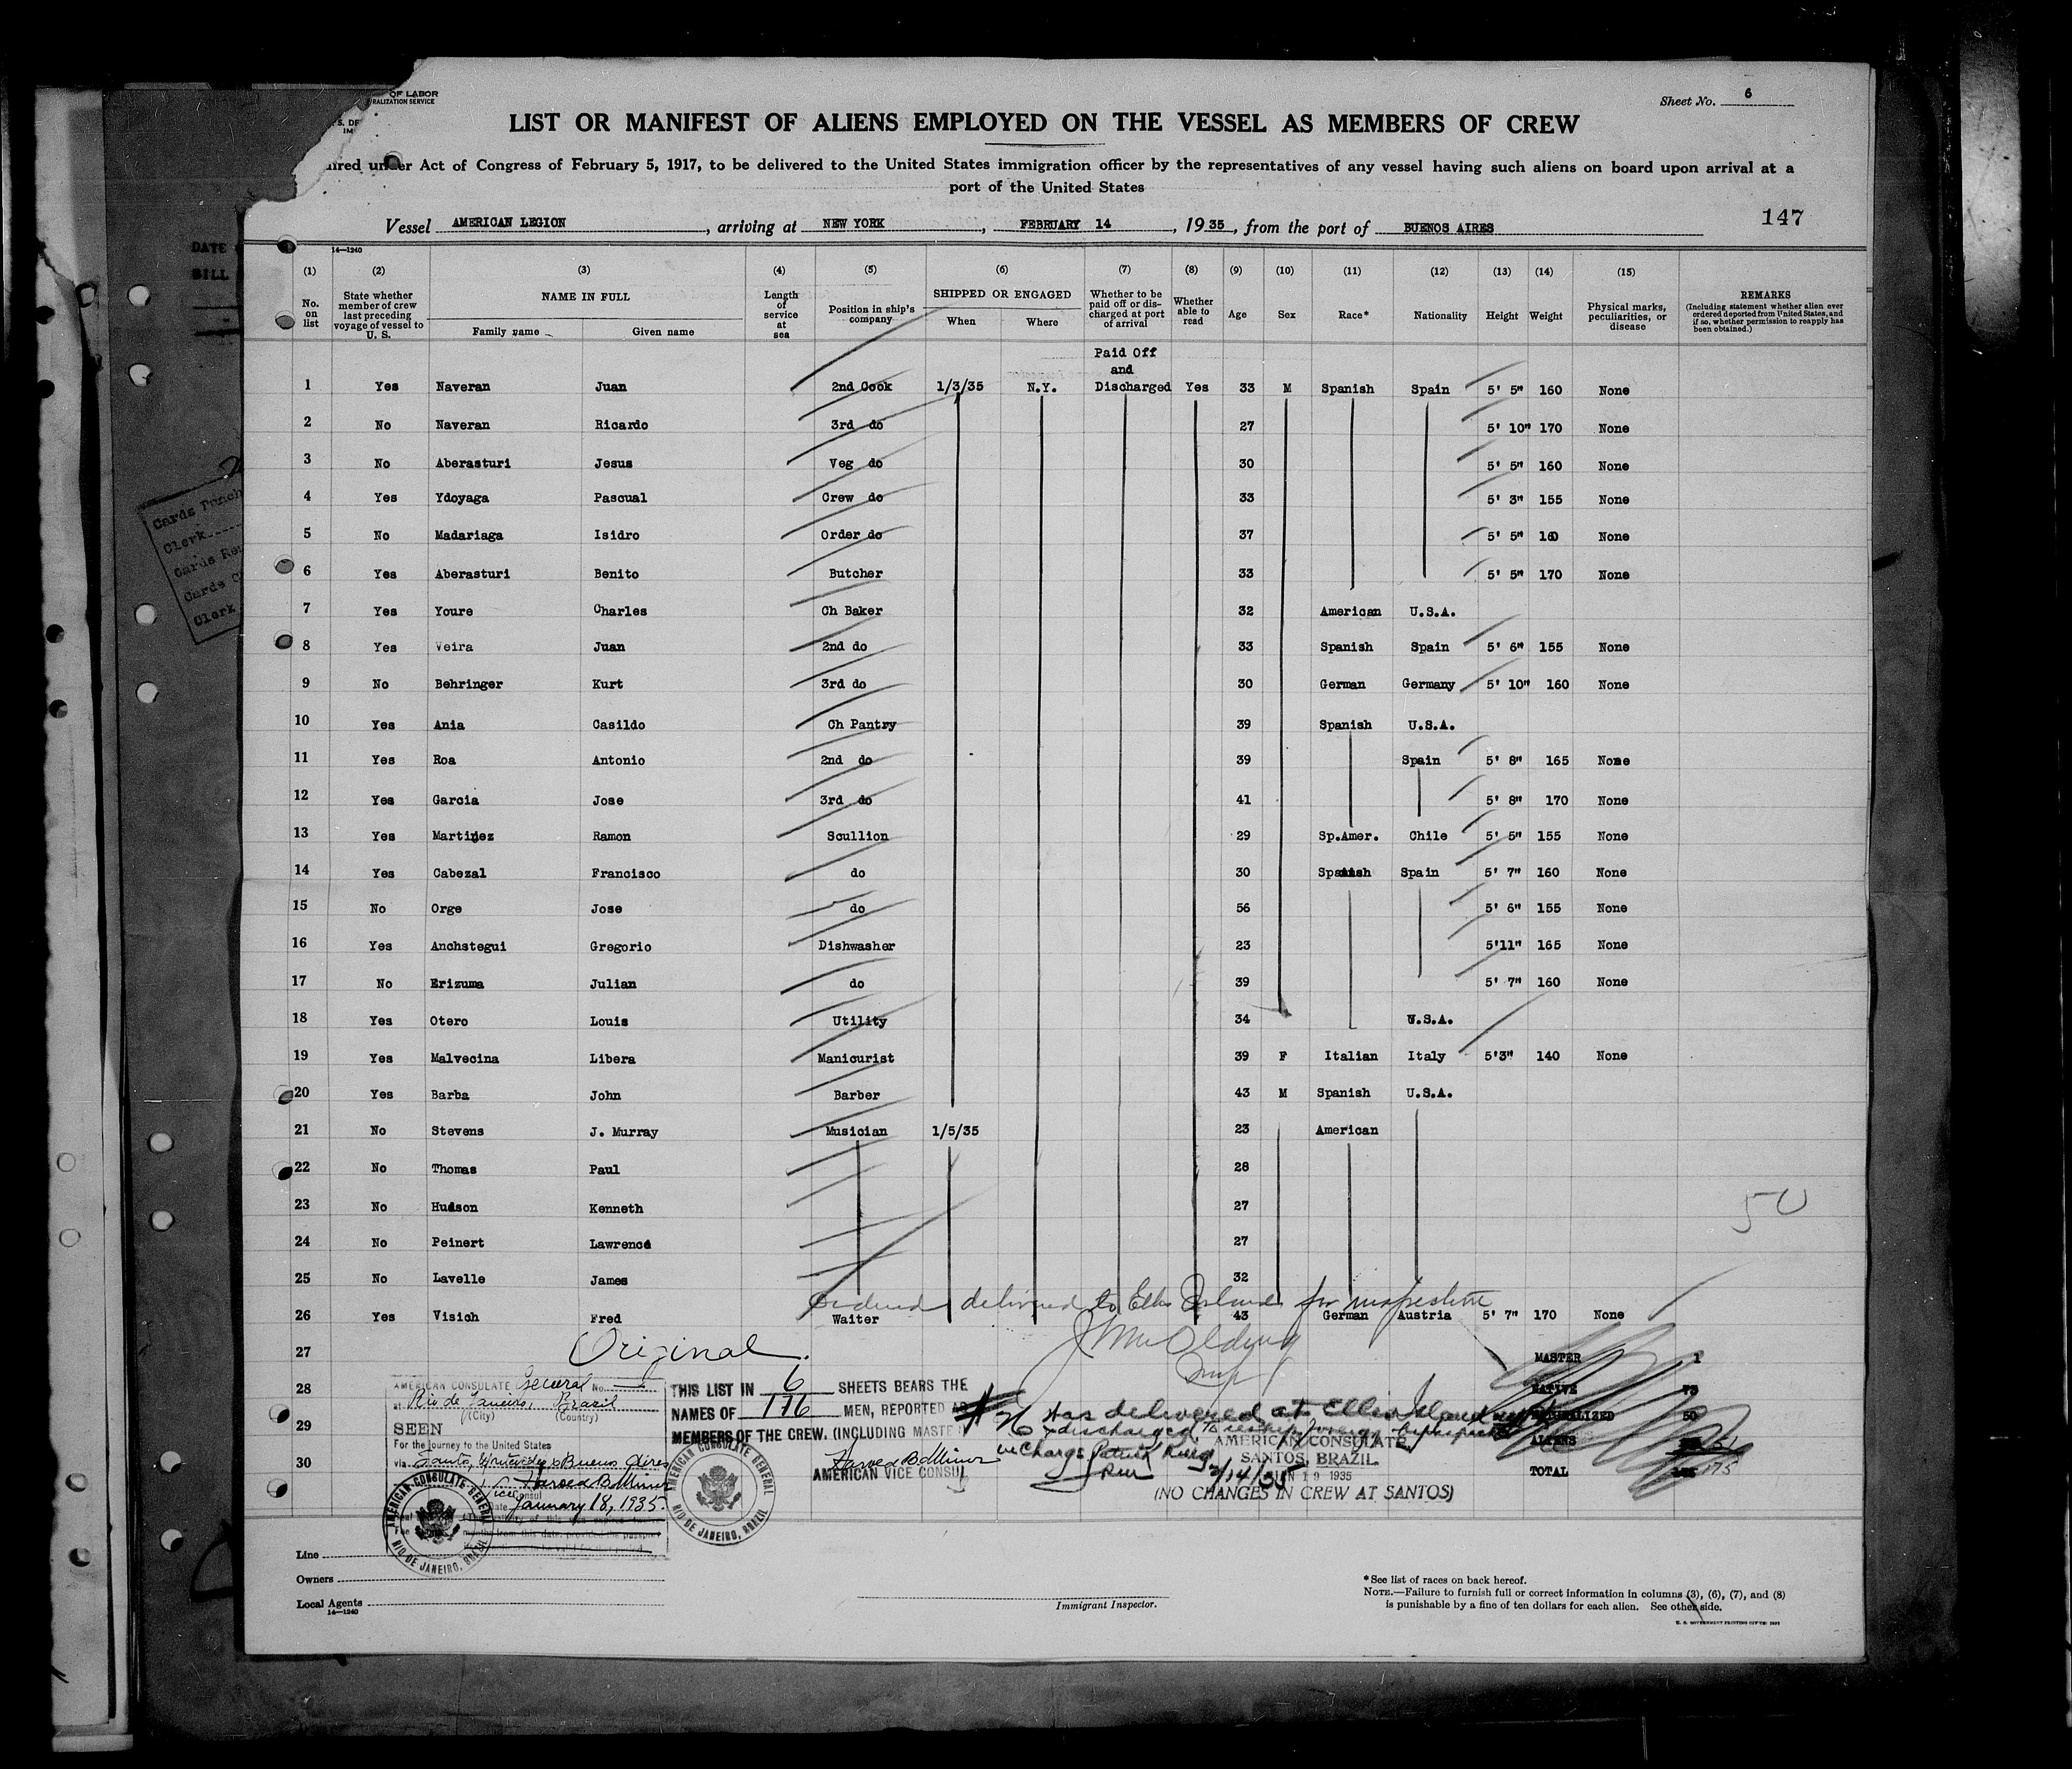 OF LABOR
RALIZATION SERVICE
S. DE
IM
Sheet No. 6
LIST OR MANIFEST OF ALIENS EMPLOYED ON THE VESSEL AS MEMBERS OF CREW
ired under Act of Congress of February 5, 1917, to be delivered to the United States immigration officer by the representatives of any vessel having such aliens on board upon arrival at a
port of the United States
Vessel AMERICAN LEGION, arriving at NEW YORK, FEBRUARY 14, 1935, from the port of BUENOS AIRES
147
DATE
BILL
14—1240
(1) (2) (3) (4) (5) (6) (7) (8) (9) (10) (11) (12) (13) (14) (15)
No. on list
State whether member of crew last preceding voyage of vessel to U. S.
NAME IN FULL
Family name
Given name
Length of service at sea
Position in ship's company
SHIPPED OR ENGAGED
When
Where
Whether to be paid off or discharged at port of arrival
Whether able to read
Age
Sex
Race*
Nationality
Height
Weight
Physical marks, peculiarities, or disease
REMARKS
(Including statement whether alien ever ordered deported from United States, and if so, whether permission to reapply has been obtained.)
Paid Off
and
1 Yes Naveran Juan 2nd Cook 1/3/35 N.Y. Discharged Yes 33 M Spanish Spain 5' 5" 160 None
2 No Naveran Ricardo 3rd do 27 5' 10" 170 None
3 No Aberasturi Jesus Veg do 30 5' 5" 160 None
4 Yes Ydoyaga Pascual Crew do 33 5' 3" 155 None
5 No Madariaga Isidro Order do 37 5' 5" 160 None
6 Yes Aberasturi Benito Butcher 33 5' 5" 170 None
7 Yes Youre Charles Ch Baker 32 American U.S.A.
8 Yes Veira Juan 2nd do 33 Spanish Spain 5' 6" 155 None
9 No Behringer Kurt 3rd do 30 German Germany 5' 10" 160 None
10 Yes Ania Casildo Ch Pantry 39 Spanish U.S.A.
11 Yes Roa Antonio 2nd do 39 Spain 5' 8" 165 None
12 Yes Garcia Jose 3rd do 41 5' 8" 170 None
13 Yes Martinez Ramon Scullion 29 Sp.Amer. Chile 5' 5" 155 None
14 Yes Cabezal Francisco do 30 Spanish Spain 5' 7" 160 None
15 No Orge Jose do 56 5' 6" 155 None
16 Yes Anchstegui Gregorio Dishwasher 23 5'11" 165 None
17 No Erizuma Julian do 39 5' 7" 160 None
18 Yes Otero Louis Utility 34 U.S.A.
19 Yes Malvecina Libera Manicurist 39 F Italian Italy 5'3" 140 None
20 Yes Barba John Barber 43 M Spanish U.S.A.
21 No Stevens J. Murray Musician 1/5/35 23 American
22 No Thomas Paul 28
23 No Hudson Kenneth 27
50
24 No Peinert Lawrence 27
25 No Lavelle James 32
Ordered delivered to Ellis Island for inspection
26 Yes Visich Fred Waiter 43 German Austria 5' 7" 170 None
27 Original.
MASTER 1
28
NATIVE 73
29
NATURALIZED 50
30
ALIENS 51
TOTAL 175
AMERICAN CONSULATE General No.
at Rio de Janeiro, Brazil
(City) (Country)
SEEN
For the journey to the United States
via Santos, Montevideo & Buenos Aires
Harold B. Minor
Vice Consul
Date January 18, 1935.
AMERICAN CONSULATE GENERAL
RIO DE JANEIRO, BRAZIL
THIS LIST IN 6 SHEETS BEARS THE
NAMES OF 176 MEN, REPORTED AS
MEMBERS OF THE CREW. (INCLUDING MASTER
Harold B. Minor
AMERICAN VICE CONSUL
AMERICAN CONSULATE GENERAL
RIO DE JANEIRO, BRAZIL
# 26 was delivered at Ellis Island
& discharged to reship foreign
in Charge Patrick King
2/14/35
AMERICAN CONSULATE,
SANTOS, BRAZIL.
JAN 19 1935
(NO CHANGES IN CREW AT SANTOS)
Line
Owners
Local Agents
14—1240
Immigrant Inspector.
*See list of races on back hereof.
NOTE.—Failure to furnish full or correct information in columns (3), (6), (7), and (8)
is punishable by a fine of ten dollars for each alien. See other side.
Cards Punch
Clerk
Cards Rev
Cards C
Clerk